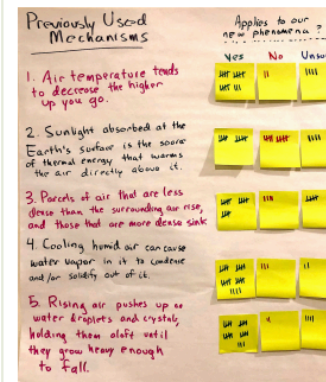 Previously Used
Mechanisms
Applies to our
new phenomena?
Yes No Unsu
1. Air temperature tends
to decrease the higher
up you go.
2. Sunlight absorbed at the
Earth's surface is the source
of thermal energy that warms
the air directly above it.
3. Parcels of air that are less
dense than the surrounding air rise,
and those that are more dense sink
4. Cooling humid air can cause
water vapor in it to condense
and/or solidify out of it.
5. Rising air pushes up on
water droplets and crystals,
holding them aloft until
they grow heavy enough
to fall.